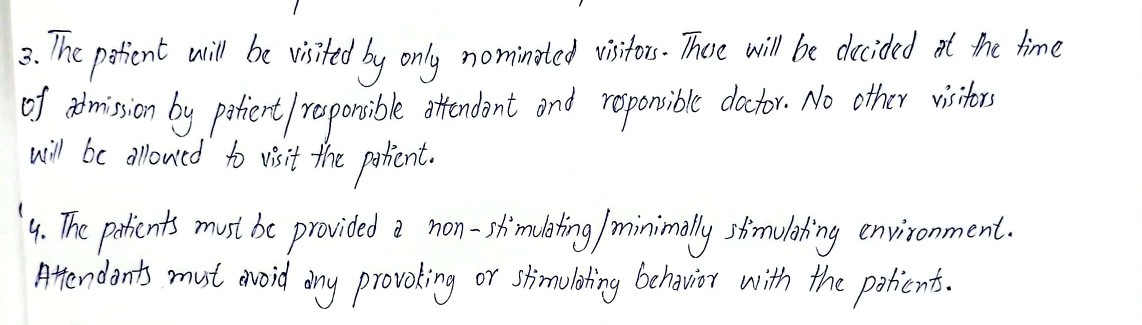 3. The patient will be visited by only nominated visitors. These will be decided at the time
of admission by patient/responsible attendant and responsible doctor. No other visitors
will be allowed to visit the patient.
4. The patients must be provided a non-stimulating/minimally stimulating environment.
Attendants must avoid any provoking or stimulating behavior with the patients.